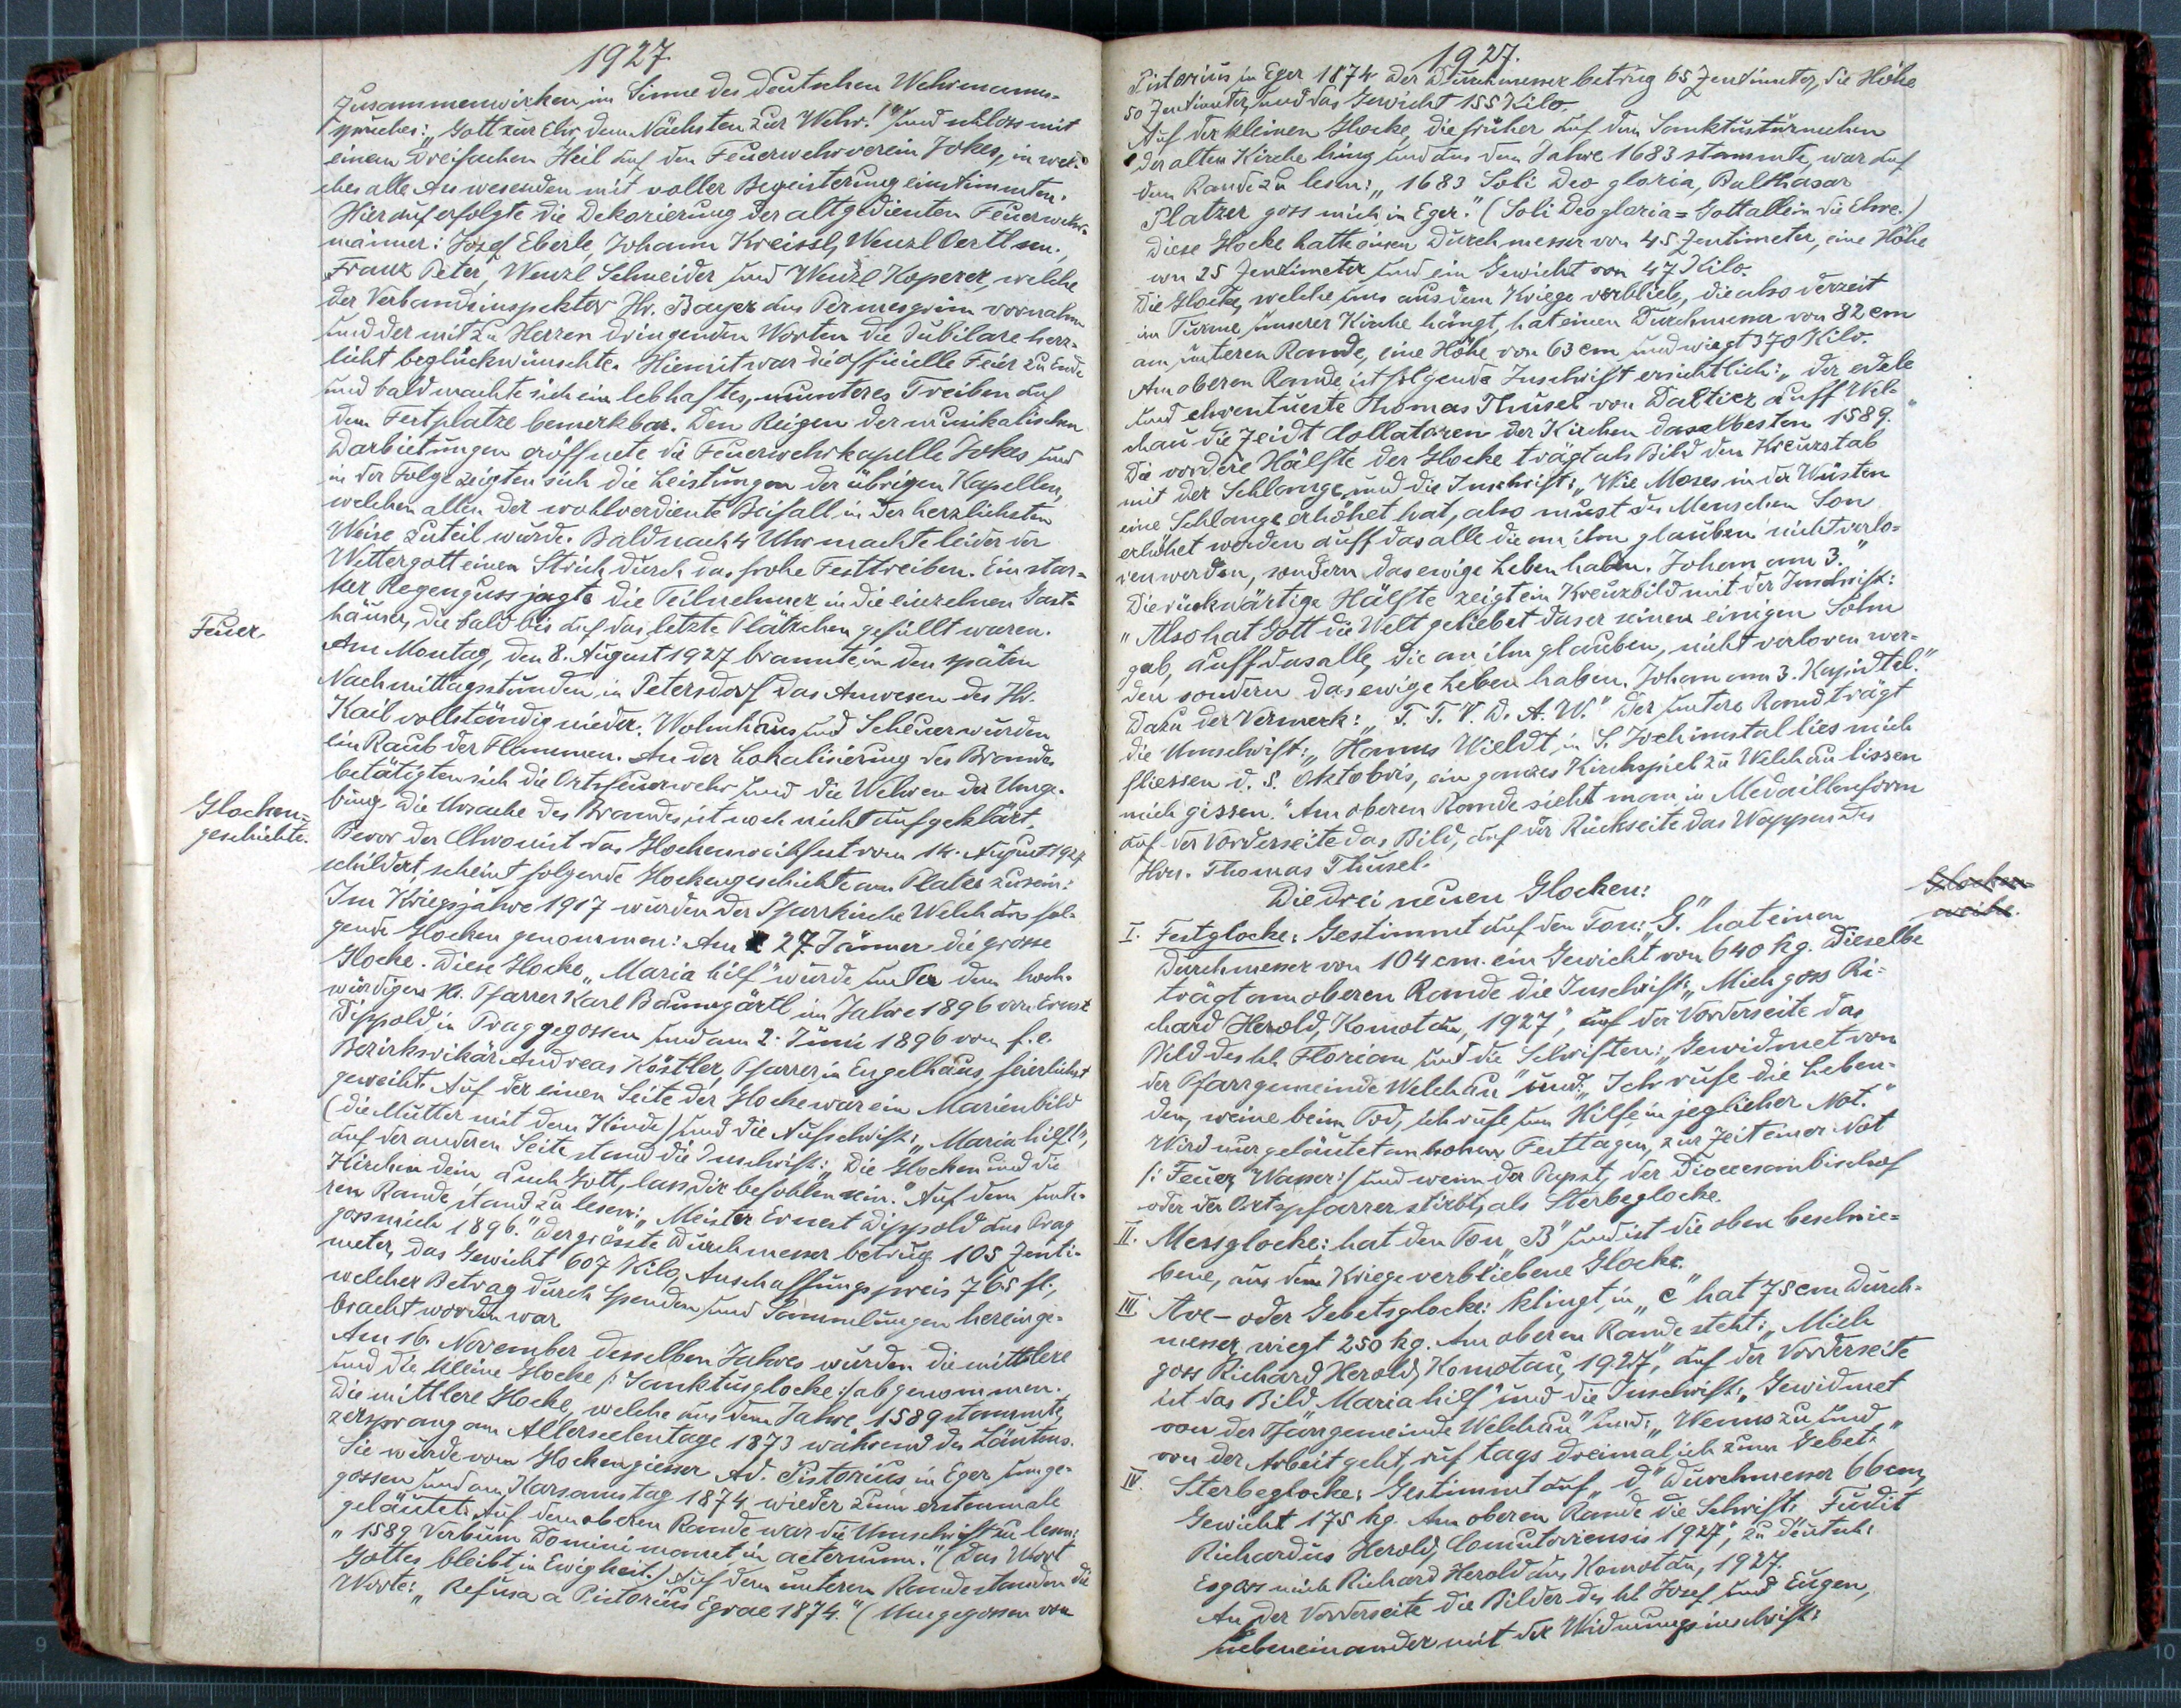 1927.
Zusammenwirken im Sinne des deutschen Wehrmanns-
spruches: „Gott zur Ehr, dem Nächsten zur Wehr!" und schloss mit
einem dreifachen Heil auf den Feuerwehrverein Jokes, in wel-
ches alle Anwesenden mit voller Begeisterung einstimmten.
Hierauf erfolgte die Dekorierung der altgedienten Feuerwehr-
männer: Josef Eberle, Johann Kreissl, Wenzl Oertl sen.,
Franz Peter, Wenzl Schneider und Wenzl Koperer, welche
der Verbandsinspektor Hr. Bayer aus Permesgrün vornahm
und der mit zu Herzen dringenden Worten die Jubilare herz-
lichst beglückwünschte. Hiemit war die officielle Feier zu Ende
und bald machte sich ein lebhaftes, munteres Treiben auf
dem Festplatze bemerkbar. Den Reigen der musikalischen
Darbietungen eröffnete die Feuerwehrkapelle Jokes und
in der Folge zeigten sich die Leistungen der übrigen Kapellen,
welchen allen der wohlverdiente Beifall in der herzlichsten
Weise zuteil wurde. Bald nach 4 Uhr machte leider der
Wettergott einen Strich durch das frohe Festtreiben. Ein star-
ker Regenguss jagte die Teilnehmer in die einzelnen Gast-
häuser, die bald bis auf das letzte Plätzchen gefüllt waren.
Feuer.
Am Montag, den 8. August 1927 brannte in den späten
Nachmittagsstunden in Petersdorf das Anwesen des Hr.
Kail vollständig nieder. Wohnhaus und Scheuer wurden
ein Raub der Flammen. An der Lokalisierung des Brandes
betätigten sich die Ortsfeuerwehr und die Wehren der Umge-
bung. Die Ursache des Brandes ist noch nicht aufgeklärt.
Glocken-
geschichte.
Bevor der Chronist das Glockenweihfest vom 14. August 1927
schildert, scheint folgende Glockengeschichte am Platze zu sein:
Im Kriegsjahre 1917 wurden der Pfarrkirche Welchau fol-
gende Glocken genommen: Am 27. Jänner die grosse
Glocke. Diese Glocke „Maria hilf" wurde unter dem hoch-
würdigen H. Pfarrer Karl Baumgärtl im Jahre 1896 von Ernst
Dippold in Prag gegossen und am 2. Juni 1896 vom f. e.
Bezirksvikär Andreas Köstler, Pfarrer in Engelhaus, feierlichst
geweiht. Auf der einen Seite der Glocke war ein Marienbild
(die Mutter mit dem Kinde) und die Aufschrift: „Maria hilf!",
auf der anderen Seite stand die Inschrift: „Die Glocken und die
Kirchen dein, auch Gott, lass dir befohlen sein." Auf dem unte-
ren Rande stand zu lesen: „Meister Ernest Dippold aus Prag
goss mich 1896." Der grösste Durchmesser betrug 105 Zenti-
meter, das Gewicht 607 Kilo, Anschaffungspreis 765 fl.,
welcher Betrag durch Spenden und Sammlungen hereinge-
bracht worden war.
Am 16. November desselben Jahres wurden die mittlere
und die kleine Glocke /: Sanktusglocke :/ abgenommen.
Die mittlere Glocke, welche aus dem Jahre 1589 stammte,
zersprang am Allerseelentage 1873 während des Läutens.
Sie wurde vom Glockengiesser Ad. Pistorius in Eger umge-
gossen und am Karsamstag 1874 wieder zum erstenmale
geläutet. Auf dem oberen Rande war die Umschrift zu lesen:
„1589 Verbum Domini manet in aeternum." (Das Wort
Gottes bleibt in Ewigkeit.) Auf dem unteren Rande standen die
Worte: „Refusa a Pistorius Egrae 1874." (Umgegossen von
1927.
Pistorius in Eger 1874 Der Durchmesser betrug 65 Zentimeter, die Höhe
50 Zentimeter und das Gewicht 155 Kilo.
Auf der kleinen Glocke, die früher auf dem Sanktustürmchen
der alten Kirche hing und aus dem Jahre 1683 stammte, war auf
dem Rande zu lesen: „1683 Soli Deo gloria, Balthasar
Platzer goss mich in Eger." (Soli Deo gloria = Gott allein die Ehre.)
Diese Glocke hatte einen Durchmesser von 45 Zentimeter, eine Höhe
von 25 Zentimeter und ein Gewicht von 47 Kilo.
Die Glocke, welche uns aus dem Kriege verblieb, die also derzeit
im Turme unserer Kirche hängt, hat einen Durchmesser von 82 cm
am unteren Rande, eine Höhe von 63 cm und wiegt 370 Kilo.
Am oberen Rande ist folgende Inschrift ersichtlich: „Der edele
und ehrentueste Thomas Thüsel von Daltier auff Wel-
chau die Zeidt Collatoren der Kirchen daselbesten 1589."
Die vordere Hälfte der Glocke trägt als Bild den Kreuzstab
mit der Schlange und die Inschrift: „Wie Moses in der Wüsten
eine Schlange erhöhet hat, also must des Menschen Son
erhöhet werden auff das alle die an ihn glauben nicht verlo-
ren werden, sondern das ewige Leben haben. Johan am 3."
Die rückwärtige Hälfte zeigt ein Kreuzbild mit der Inschrift:
„Also hat Gott die Welt geliebet das er seinen einigen Sohn
gab, auff das alle, die an ihn glauben, nicht verloren wer-
den sondern das ewige Leben haben. Johan am 3. Kapidtel."
Dazu der Vermerk: „T. T. V. D. A. W." Der untere Rand trägt
die Umschrift: „Hanns Wieldt in S. Jochimstal lies mich
fliessen d. 5. Oktobris, ein ganzes Kirchspiel zu Welchau lissen
mich gissen." Am oberen Rande sieht man in Medaillenform
auf der Vorderseite das Bild, auf der Rückseite das Wappen des
Hrn. Thomas Thüsel.
Die drei neuen Glocken:
Glocken-
weihe.
I. Festglocke: Gestimmt auf den Ton: „G." hat einen
Durchmesser von 104 cm. ein Gewicht von 640 kg. Dieselbe
trägt am oberen Rande die Inschrift: „Mich goss Ri-
chard Herold, Komotau, 1927", auf der Vorderseite das
Bild des hl. Florian und die Schriften: „Gewidmet von
der Pfarrgemeinde Welchau" und: „Ich rufe die Leben-
den, weine beim Tod, ich rufe um Hilfe in jeglicher Not."
Wird nur geläutet an hohen Festtagen, zur Zeit einer Not
/: Feuer, Wasser :/ und wenn der Papst, der Diocesanbischof
oder der Ortspfarrer stirbt, als Sterbeglocke.
II. Messglocke: hat den Ton „B" und ist die oben beschrie-
bene, aus dem Kriege verbliebene Glocke.
III. Ave- oder Gebetsglocke: klingt in „c" hat 75 cm Durch-
messer, wiegt 250 kg. Am oberen Rande steht: „Mich
goss Richard Herold, Komotau, 1927", auf der Vorderseite
ist das Bild „Maria hilf" und die Inschrift: „Gewidmet
von der Pfarrgemeinde Welchau" und: „Wenns zu und
von der Arbeit geht, ruf tags dreimal ich zum Gebet."
IV. Sterbeglocke: Gestimmt auf „d" Durchmesser 66 cm,
Gewicht 175 kg. Am oberen Rande die Schrift: Fudit
Richardus Herold, Comutoviensis 1927", zu deutsch:
Es goss mich Richard Herold aus Komotau, 1927.
An der Vorderseite die Bilder des hl. Josef und Eugen,
nebeneinander mit der Widmungsinschrift:
9
10